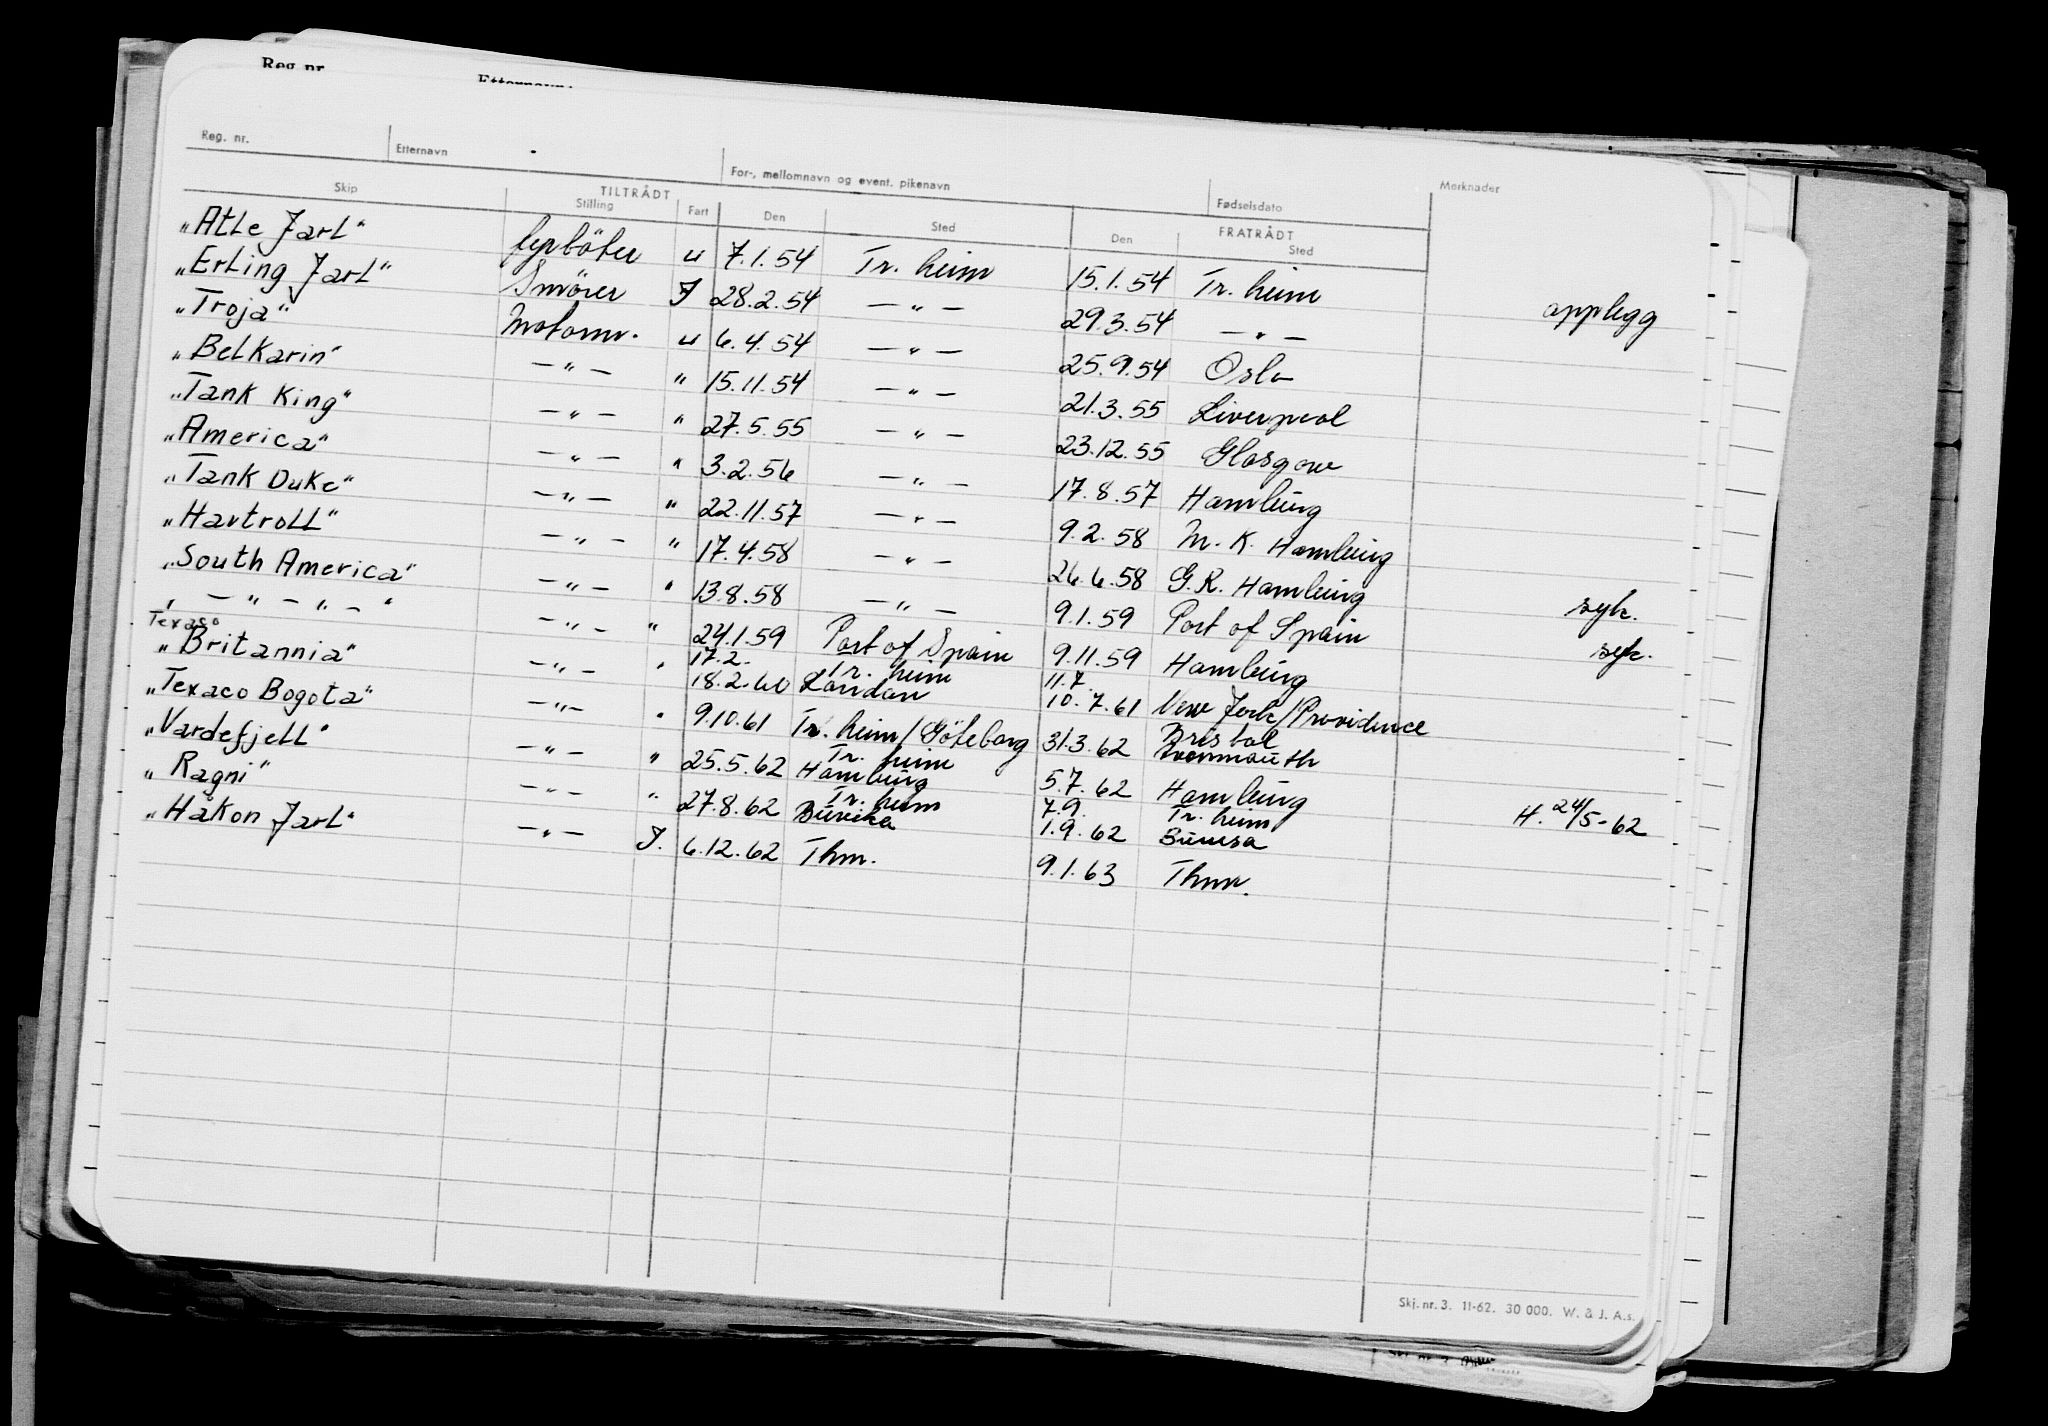 Reg. nr.
Reg. nr. Etternavn For-, mellomnavn og event. pikenavn Fødselsdato Merknader
Skip TILTRÅDT FRATRÅDT
Stilling Fart Den Sted Den Sted
"Atle Jarl" fyrbøter u 7.1.54 Tr. heim 15.1.54 Tr. heim
"Erling Jarl" Smører J 28.2.54 — " — 29.3.54 — " — opplegg
"Troja" Motorm. u 6.4.54 — " — 25.9.54 Oslo
"Belkarin" — " — " 15.11.54 — " — 21.3.55 Liverpool
"Tank King" — " — " 27.5.55 — " — 23.12.55 Glasgow
"America" — " — " 3.2.56 — " — 17.8.57 Hamburg
"Tank Duke" — " — " 22.11.57 — " — 9.2.58 M.K. Hamburg
"Havtroll" — " — " 17.4.58 — " — 26.6.58 G.R. Hamburg
"South America" — " — " 13.8.58 — " — 9.1.59 Port of Spain syk.
" — " — " — " — " — " 24.1.59 Port of Spain 9.11.59 Hamburg syk.
Texaco 17.2. Tr. heim 11.7
"Britannia" — " — " 18.2.60 London 10.7.61 New York/Providence
"Texaco Bogota" — " — " 9.10.61 Tr. heim/Göteborg 31.3.62 Bristol Avonmouth
"Vardefjell" — " — " 25.5.62 Tr. heim Hamburg 5.7.62 Hamburg H. 24/5-62
"Ragni" — " — " 27.8.62 Tr. heim Buvika 7.9. 1.9.62 Tr. heim
"Håkon Jarl" — " — J. 6.12.62 Thm. 9.1.63 Thm.
Skj. nr. 3. 11-62. 30 000. W. & J. A.s.